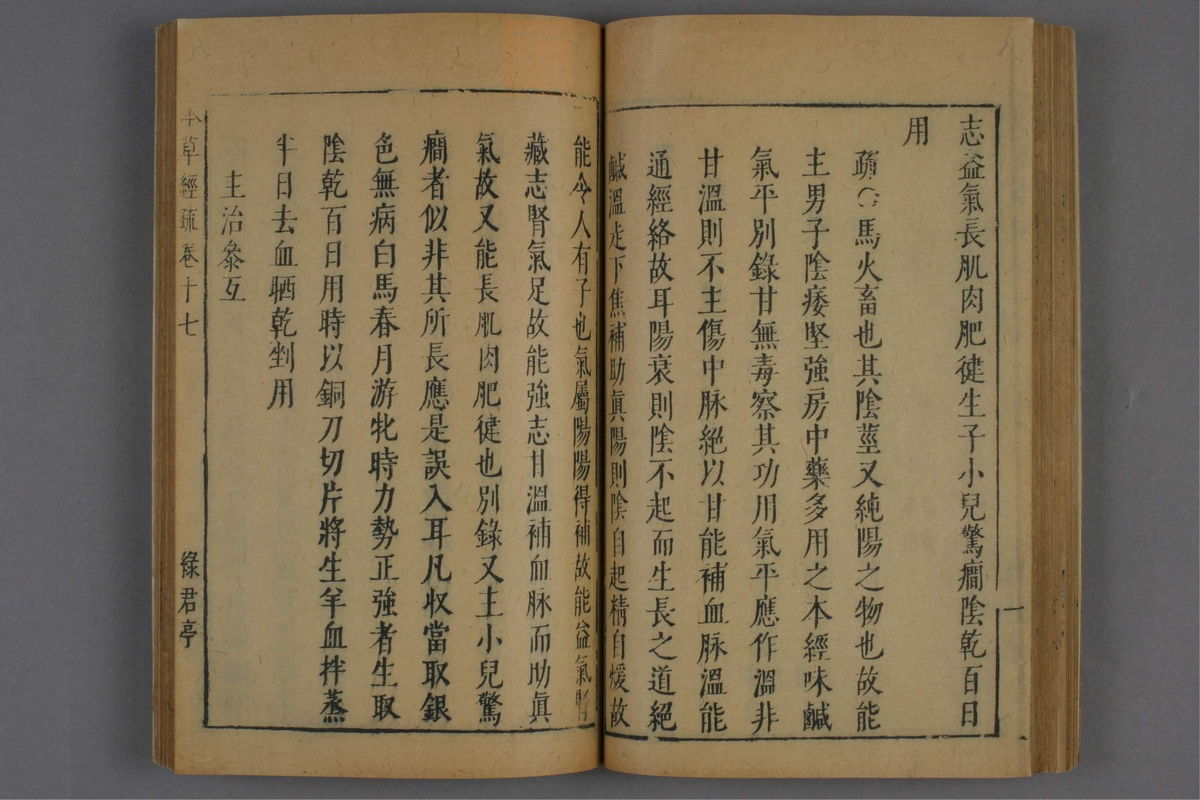 志益氣長肌肉肥健生子小兒驚癇陰乾百日
用
疏○馬火畜也其陰莖又純陽之物也故能
主男子陰痿堅強房中藥多用之本經味鹹
氣平別錄甘無毒察其功用氣平應作溫非
甘溫則不主傷中脉絕以甘能補血脉溫能
通經絡故耳陽衰則陰不起而生長之道絕
鹹溫走下焦補助眞陽則陰自起精自煖故
能令人有子也氣屬陽陽得補故能益氣腎
藏志腎氣足故能強志甘溫補血脉而助眞
氣故又能長肌肉肥健也別錄又主小兒驚
癇者似非其所長應是誤入耳凡收當取銀
色無病白馬春月游牝時力勢正強者生取
陰乾百日用時以銅刀切片將生羊血拌蒸
半日去血晒乾剉用
主治叅互
本草經疏 卷十七 綠君亭